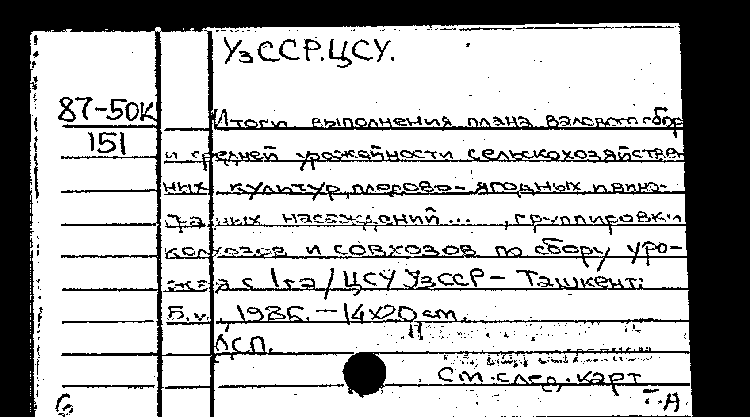 УзССР.ЦСУ.
87-50К
151
Итоги выполнения плана валового сбор
и средней урожайности сельскохозяйствен
ных культур, плодово-ягодных и вино-
ных насаждений ... , группировки
колхозов и совхозов по сбору уро-
жая с 1 га / ЦСУ УзССР - Ташкент:
Б.и., 1986. - 14х20 см.
ДСП.
См. след. карт
6
Т.А